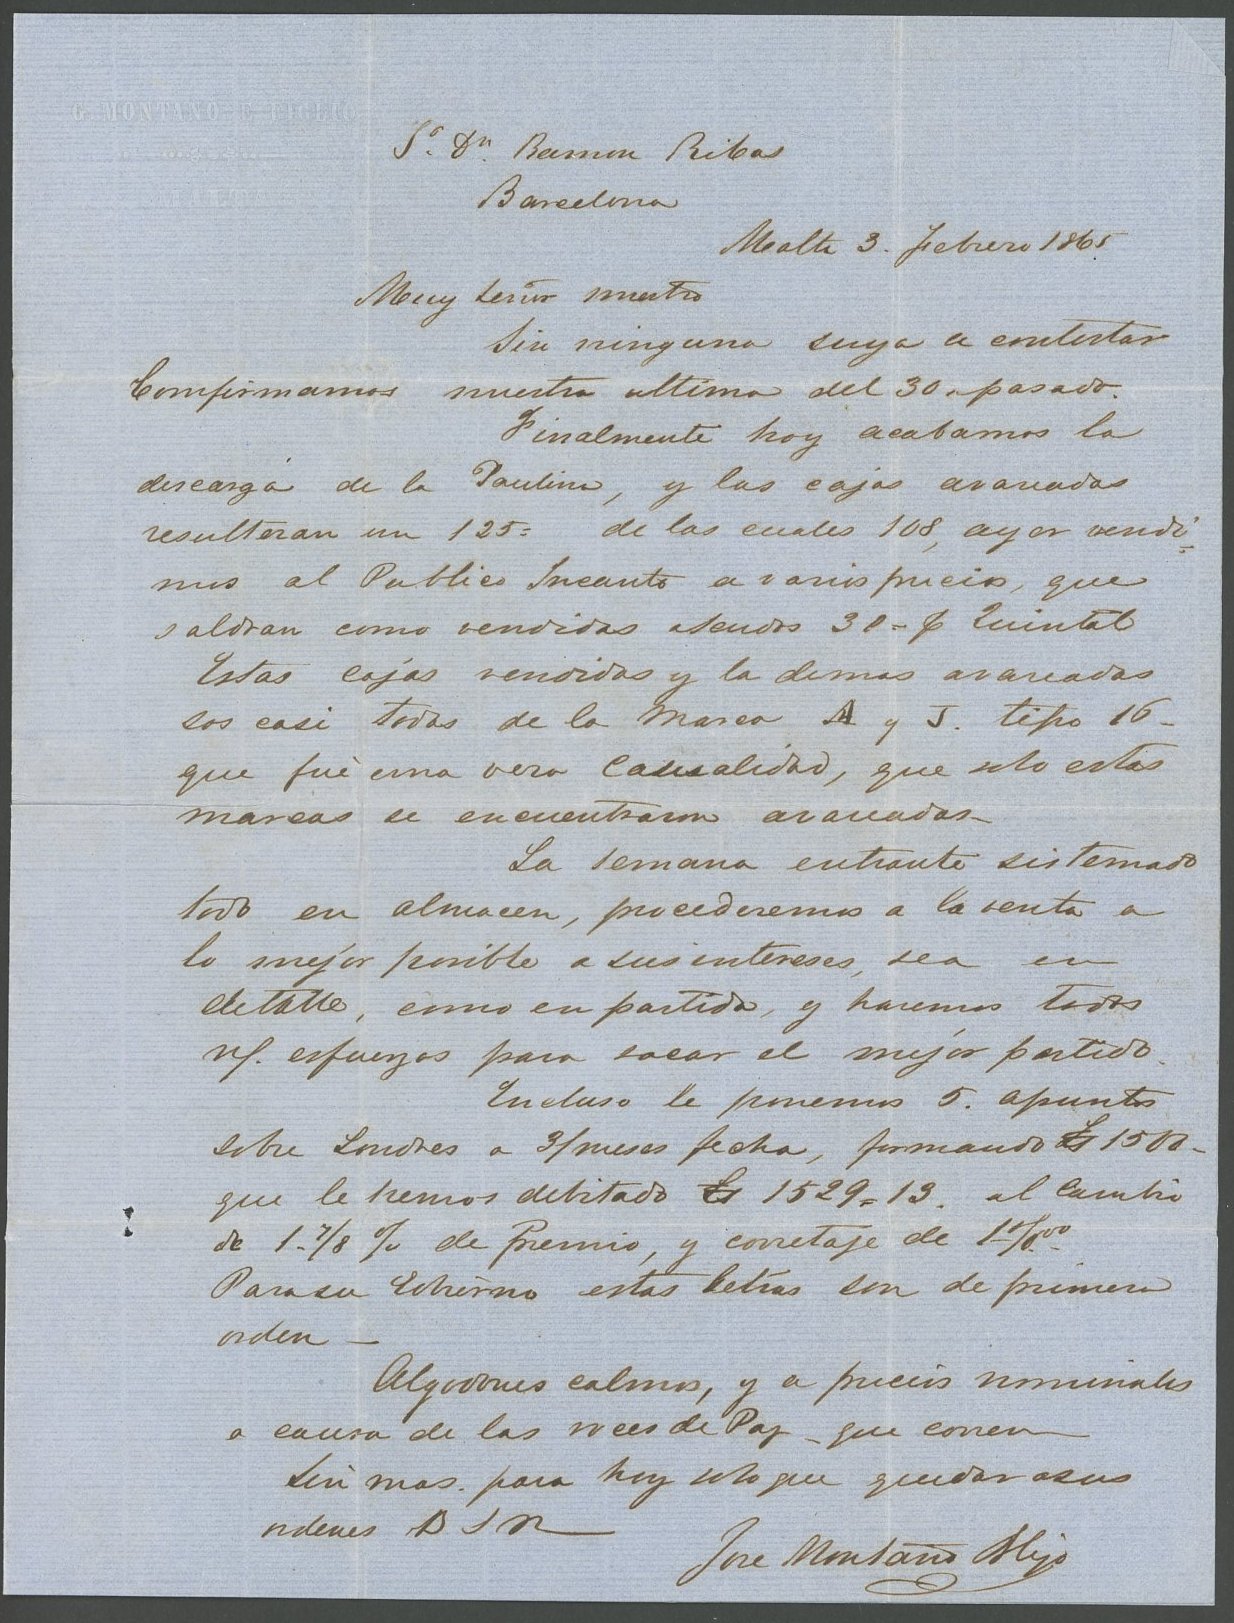 G. MONTANO E FIGLIO
MALTA
Sr. Dn. Ramon Ribas
Barcelona
Malta 3. Febrero 1865
Muy señor nuestro
Sin ninguna suya a contestar
Comfirmamos nuestra ultima del 30. pasado.
Finalmente hoy acabamos la
descarga de la Paulina, y las cajas avareadas
resulteran un 125= de las cuales 108, ayer vendi=
mos al Publico Incanto a varios precios, que
saldran como vendidas Scudos 30= p Quintal
Estas cajas vendidas y la demas avareadas
sos casi todas de la Marca A y J. tipo 16-
que fuè una vera Causalidad, que solo estas
marcas se encuentraron avareadas-
La semana entrante sistemado
todo en almacen, procederemos a la venta a
lo mejor posible a sus intereses, sea en
detalle, como en partida, y haremos todos
n/. esfuerzos para sacar el mejor partido.
Incluso le ponemos 5. apuntes
sobre Londres a 3/meses fecha, formando £s 1500-
que le hemos debitado £s 1529=13. al Cambio
de 1-7/8 % de Premio, y corretaje de 1 0/00
Para su Gobierno estas letras son de primera
orden -
Algodones calmos, y a precios nominales
a causa de las voces de Paz - que corren
Sin mas. para hoy solo que quedar a sus
ordenes B S M
Jose Montaño Hijo